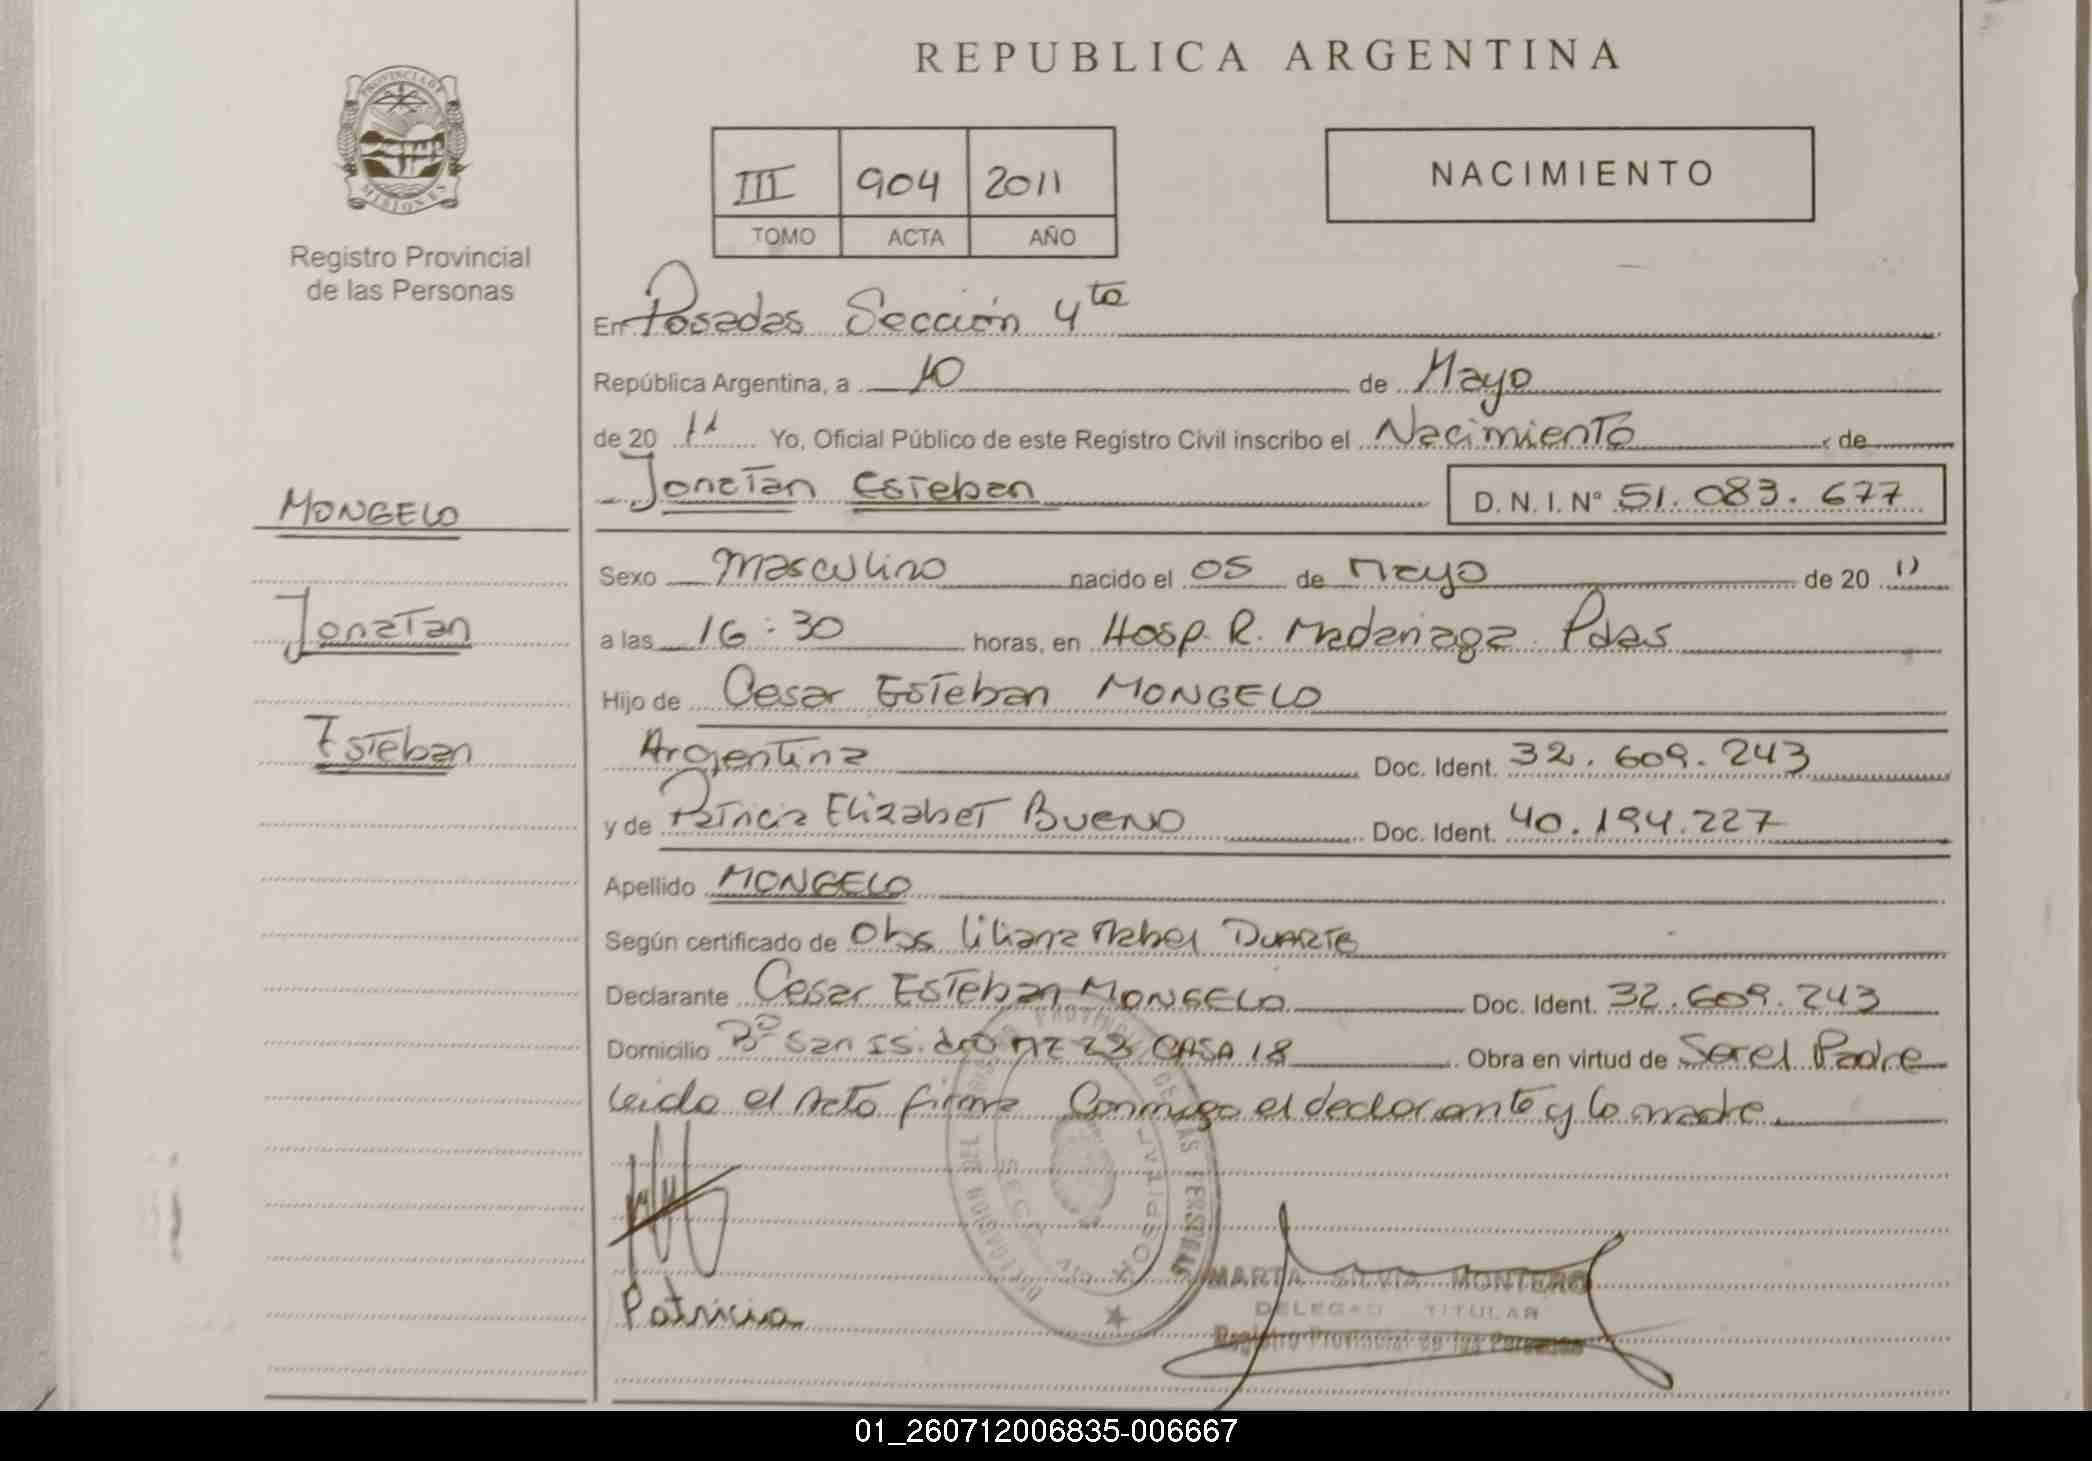 REPUBLICA ARGENTINA
PROVINCIA DE
MISIONES
Registro Provincial
de las Personas
III 904 2011
TOMO ACTA AÑO
NACIMIENTO
En Posadas Sección 4ta
República Argentina, a 10 de Mayo
de 20 11 Yo, Oficial Público de este Registro Civil inscribo el Nacimiento de
Jonatan Esteban D. N. I. N° 51.083.677
MONGELO
Jonatan
Esteban
Sexo Masculino nacido el 05 de Mayo de 20 11
a las 16:30 horas, en Hosp. R. Madariaga Pdas
Hijo de Cesar Esteban MONGELO
Argentina Doc. Ident. 32.609.243
y de Patricia Elizabet BUENO Doc. Ident. 40.194.227
Apellido MONGELO
Según certificado de Obs Liliana Mabel DUARTE
Declarante Cesar Esteban MONGELO Doc. Ident. 32.609.243
Domicilio Bº San Isidro MZ 23 CASA 18 Obra en virtud de Ser el Padre
Leida el Acta firma Conmigo el declarante y la madre
Patricia
MARTA SILVIA MONTERO
DELEGAD TITULAR
Registro Provincial de las Personas
01_260712006835-006667